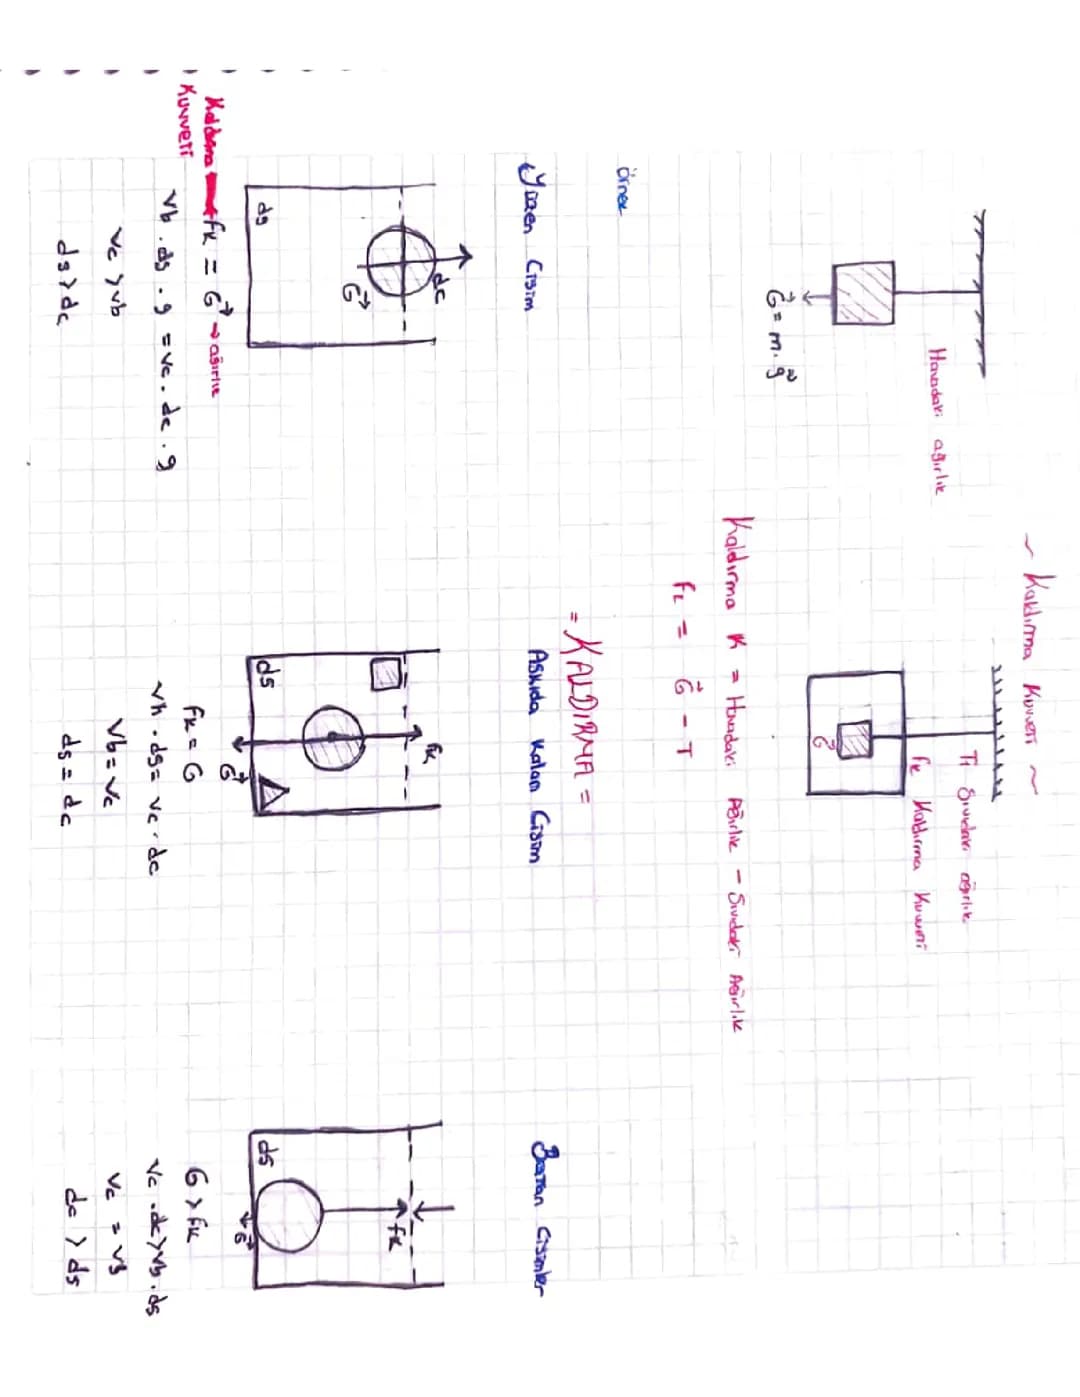 ~ Kaldırma Kuvveti ~
Havadaki ağırlık
G = m.g
T: Sıvıdaki ağırlık
fk Kaldırma Kuvveti
G
Kaldırma K = Havadaki Ağırlık - Sıvıdaki Ağırlık
fk = G - T
örnek
= KALDIRMA =
Yüzen Cisim
dc
G
ds
Kaldırma fk = G → ağırlık
Kuvveti
Vb . ds . g = Vc . dc . g
Vc > Vb
ds > dc
Askıda Kalan Cisim
fk
ds
G
fk = G
Vb . ds = Vc . dc
Vb = Vc
ds = dc
Batan Cisimler
fk
ds
G
G > fk
Vc . dc > Vb . ds
Vc = Vb
dc > ds